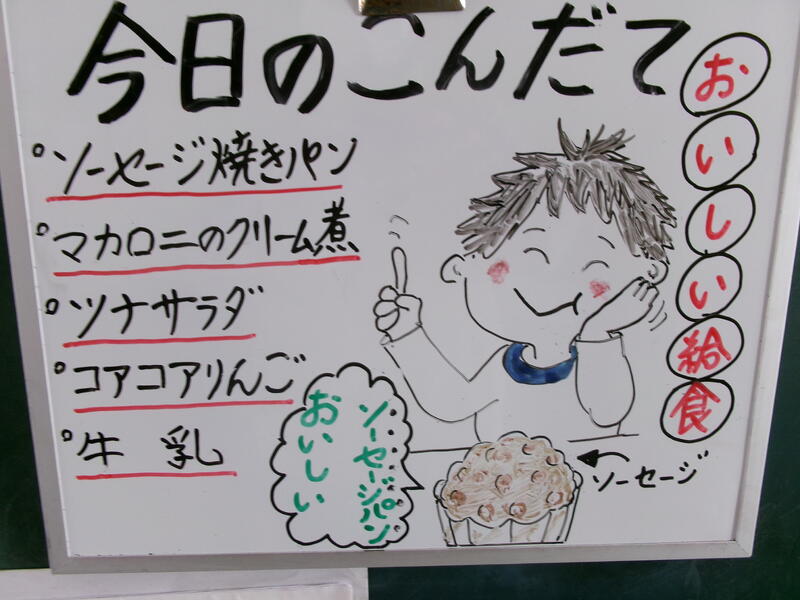 今日のこんだて
おいしい給食
ソーセージ焼きパン
マカロニのクリーム煮
ツナサラダ
コアコアりんご
牛 乳
ソーセージパン
おいしい
ソーセージ